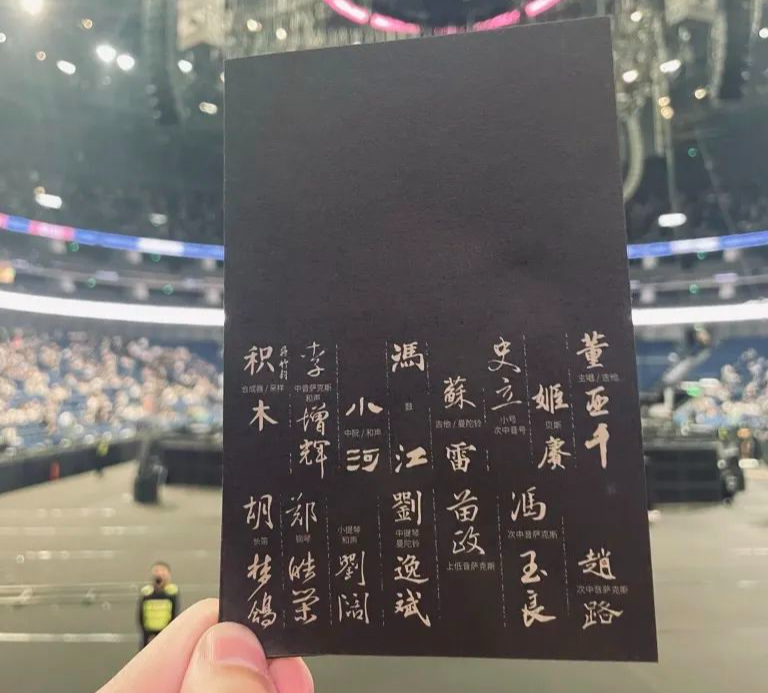 董
主唱 / 吉他
亚千
姬
贝斯
赓
史立
小号
次中音号
蘇
吉他 / 曼陀铃
雷
馮
鼓
江
小
中阮 / 和声
河
李
中音萨克斯
和声
增辉
积
合成器 / 采样
木
趙
次中音萨克斯
路
馮
次中音萨克斯
玉良
苗政
上低音萨克斯
劉
中提琴
曼陀铃
逸斌
小提琴
和声
劉阔
郑
钢琴
皓荣
胡
长笛
桂鸽